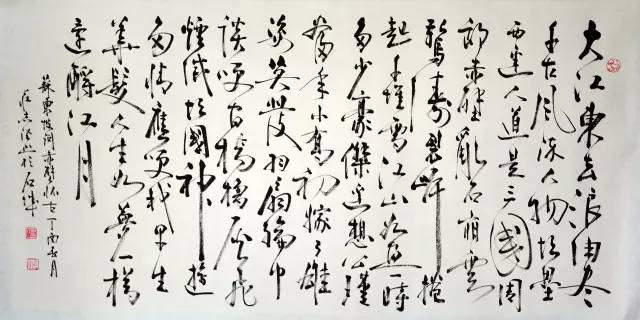 大江東去浪淘尽
千古風流人物故壘
西邊人道是三國周
郎赤壁亂石崩雲
驚濤裂岸捲
起千堆雪江山如画一時
多少豪傑遥想公瑾
當年小喬初嫁了雄
姿英發羽扇綸巾
談笑間檣櫓灰飛
煙滅故國神遊
多情應笑我早生
華髮人生如夢一樽
還酹江月
蘇東坡詞赤壁懷古丁酉春月